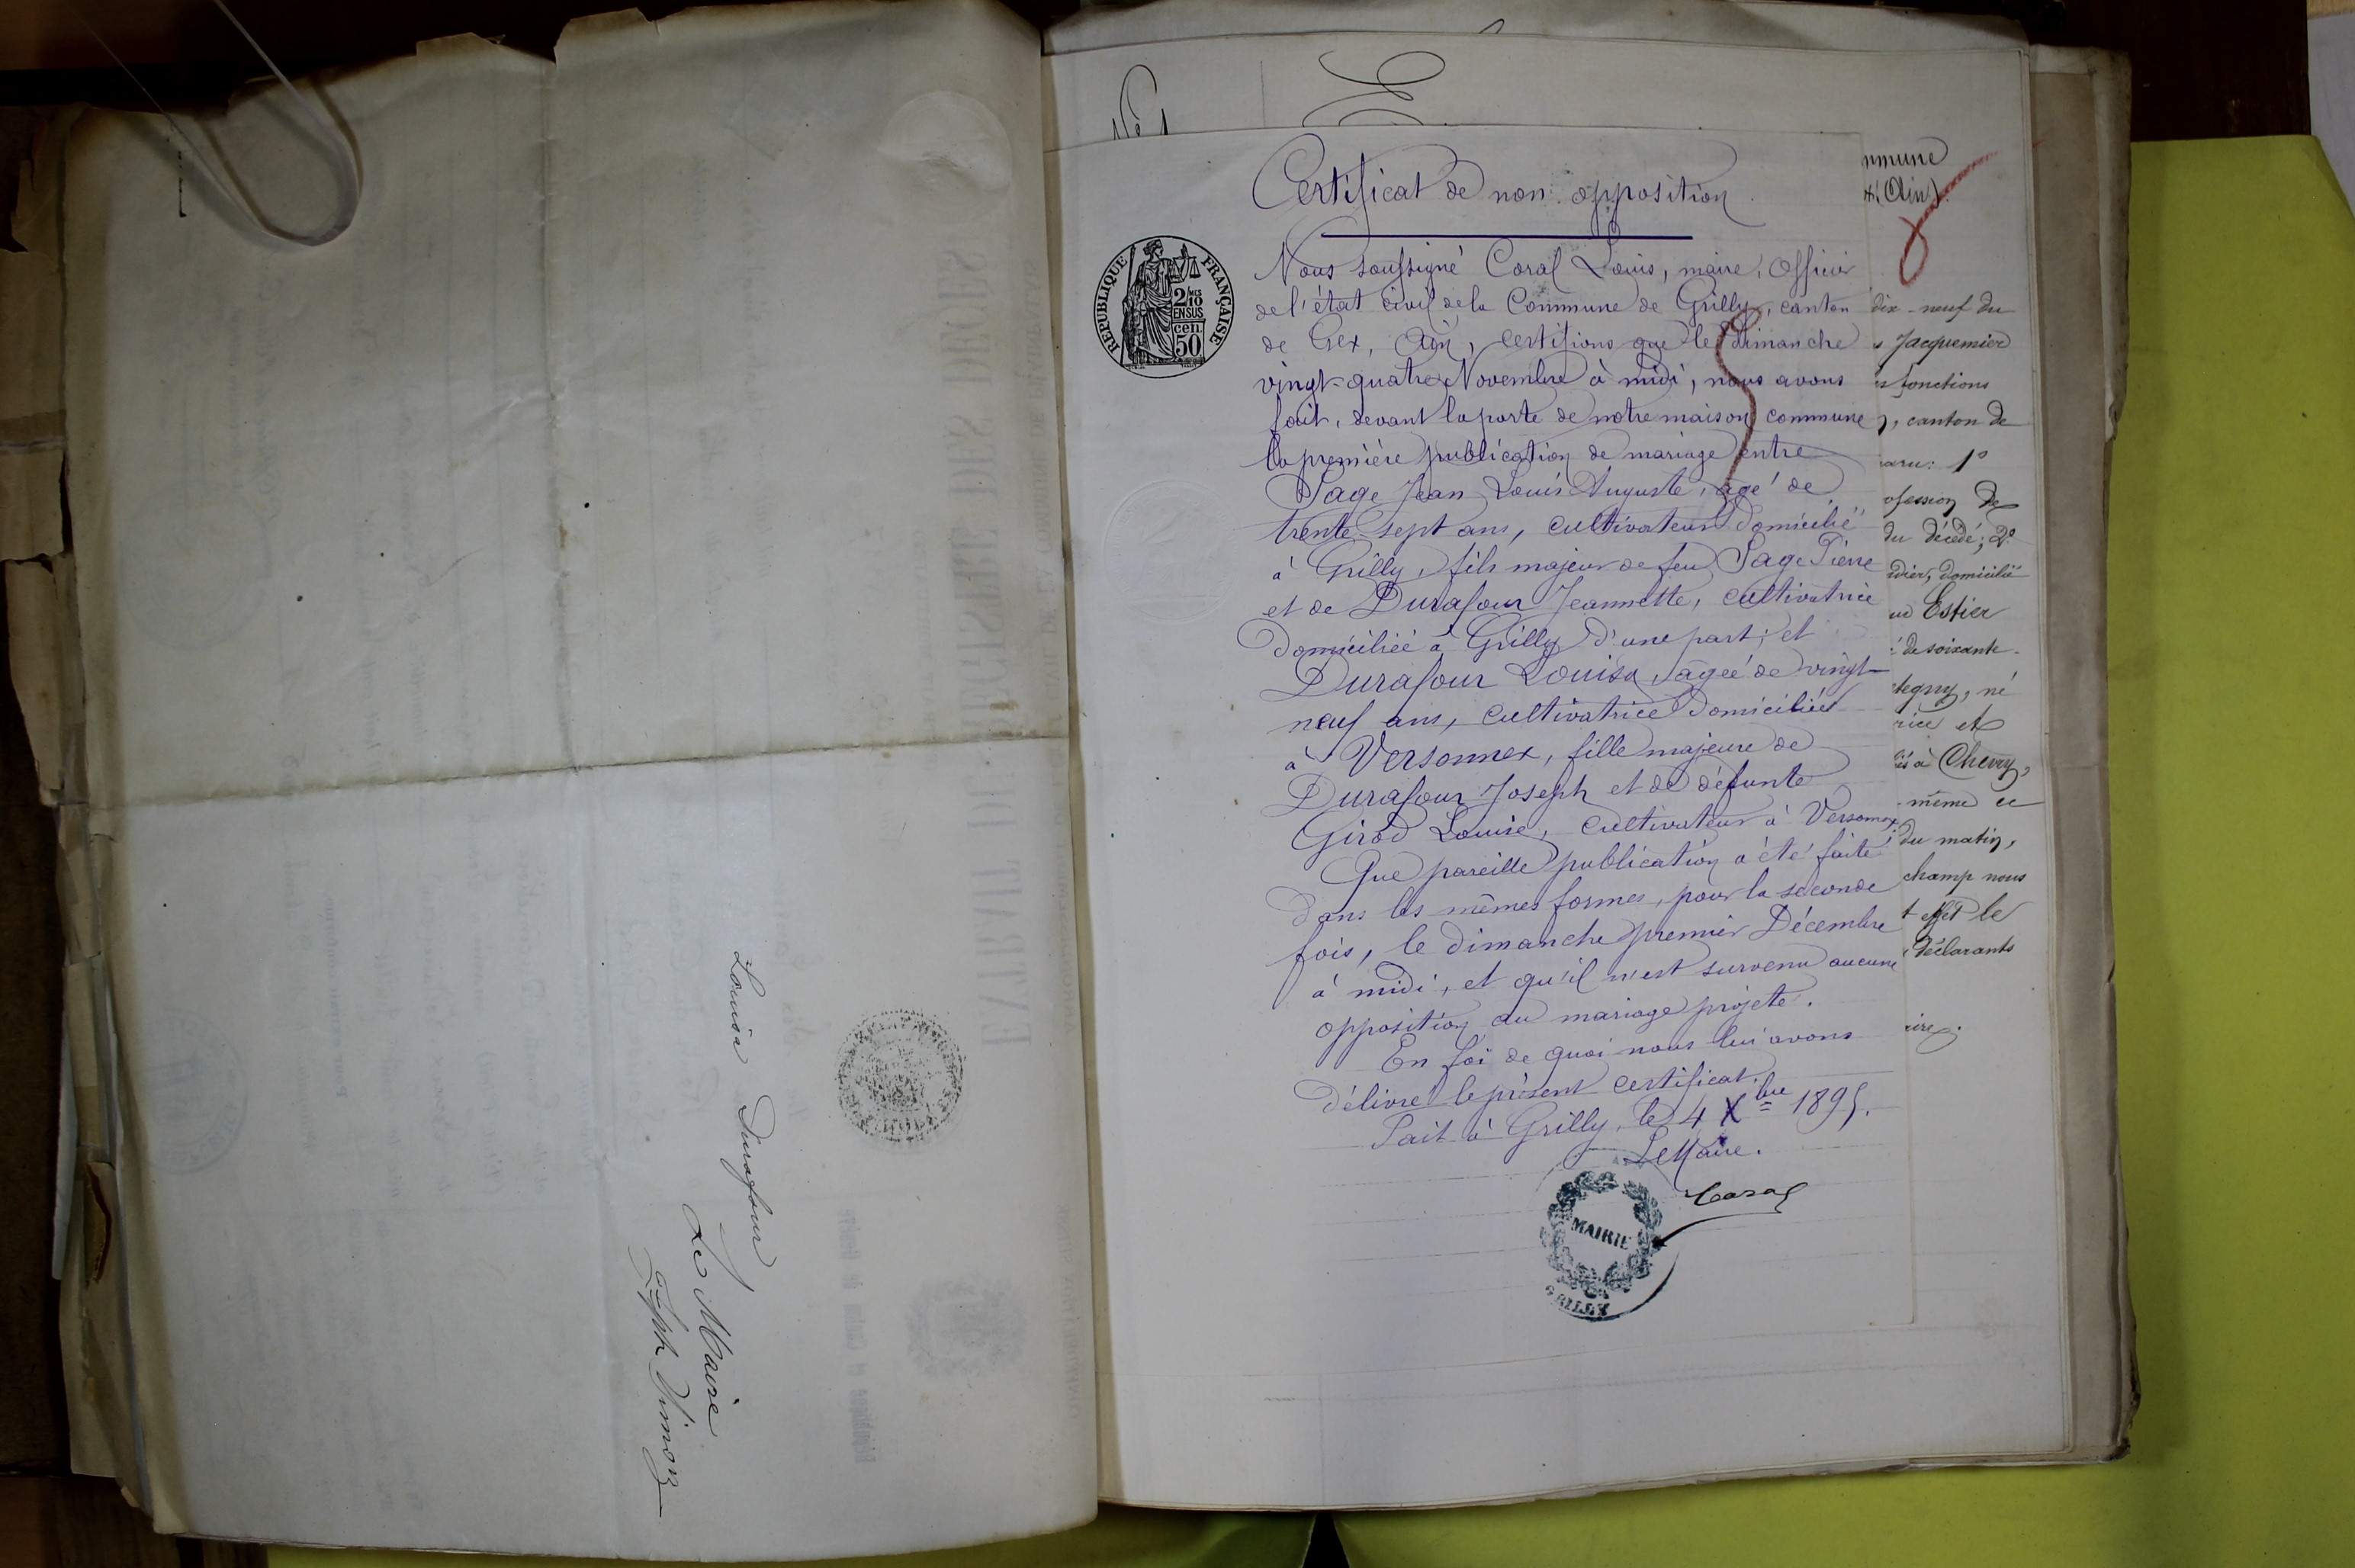 Louisa Durafour
Le Maire
Certificat de non opposition.
RÉPUBLIQUE FRANÇAISE
2/10
EN SUS
cen.
50
Nous soussigné Coral Louis, maire, Officier
de l'état civil de la Commune de Grilly, canton
de Gex, Ain, certifions que le dimanche
vingt-quatre Novembre à midi, nous avons
fait, devant la porte de notre maison commune
la première publication de mariage entre
Sage Jean Louis Auguste, âgé de
trente sept ans, cultivateur domicilié
à Grilly, fils majeur de feu Sage Pierre
et de Durafour Jeannette, cultivatrice
domiciliée à Grilly d'une part; et
Durafour Louisa, âgée de vingt-
neuf ans, cultivatrice domiciliée
à Versonnex, fille majeure de
Durafour Joseph et de défunte
Girod Louise, cultivateur à Versonnex
Que pareille publication a été faite
dans les mêmes formes, pour la seconde
fois, le dimanche premier Décembre
à midi, et qu'il n'est survenu aucune
opposition au mariage projeté.
En foi de quoi nous lui avons
délivré le présent certificat.
Fait à Grilly, le 4 Xbre 1895.
Le Maire.
Coral
MAIRIE
GRILLY
mmune
x (Ain).
dix-neuf du
s Jacquemier
es fonctions
, canton de
aru: 1°
ofession de
du décédé; 2°
domicilié
Estier
é de soixante-
tegny, né
rice et
liés à Chevry,
même ce
du matin,
champ nous
t effet le
déclarants
aire.